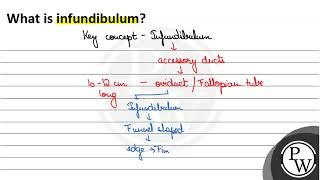 What is infundibulum?
Key concept - Infundibulum
accessory ducts
10-12 cm - oviduct / Fallopian tube
long
Infundibulum
Funnel shaped
edge → Fim
PW